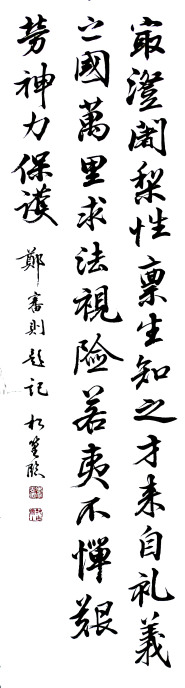 最澄闍梨性稟生知之才来自礼義
之國萬里求法視險若夷不憚艱
勞神力保護
鄭審則題記